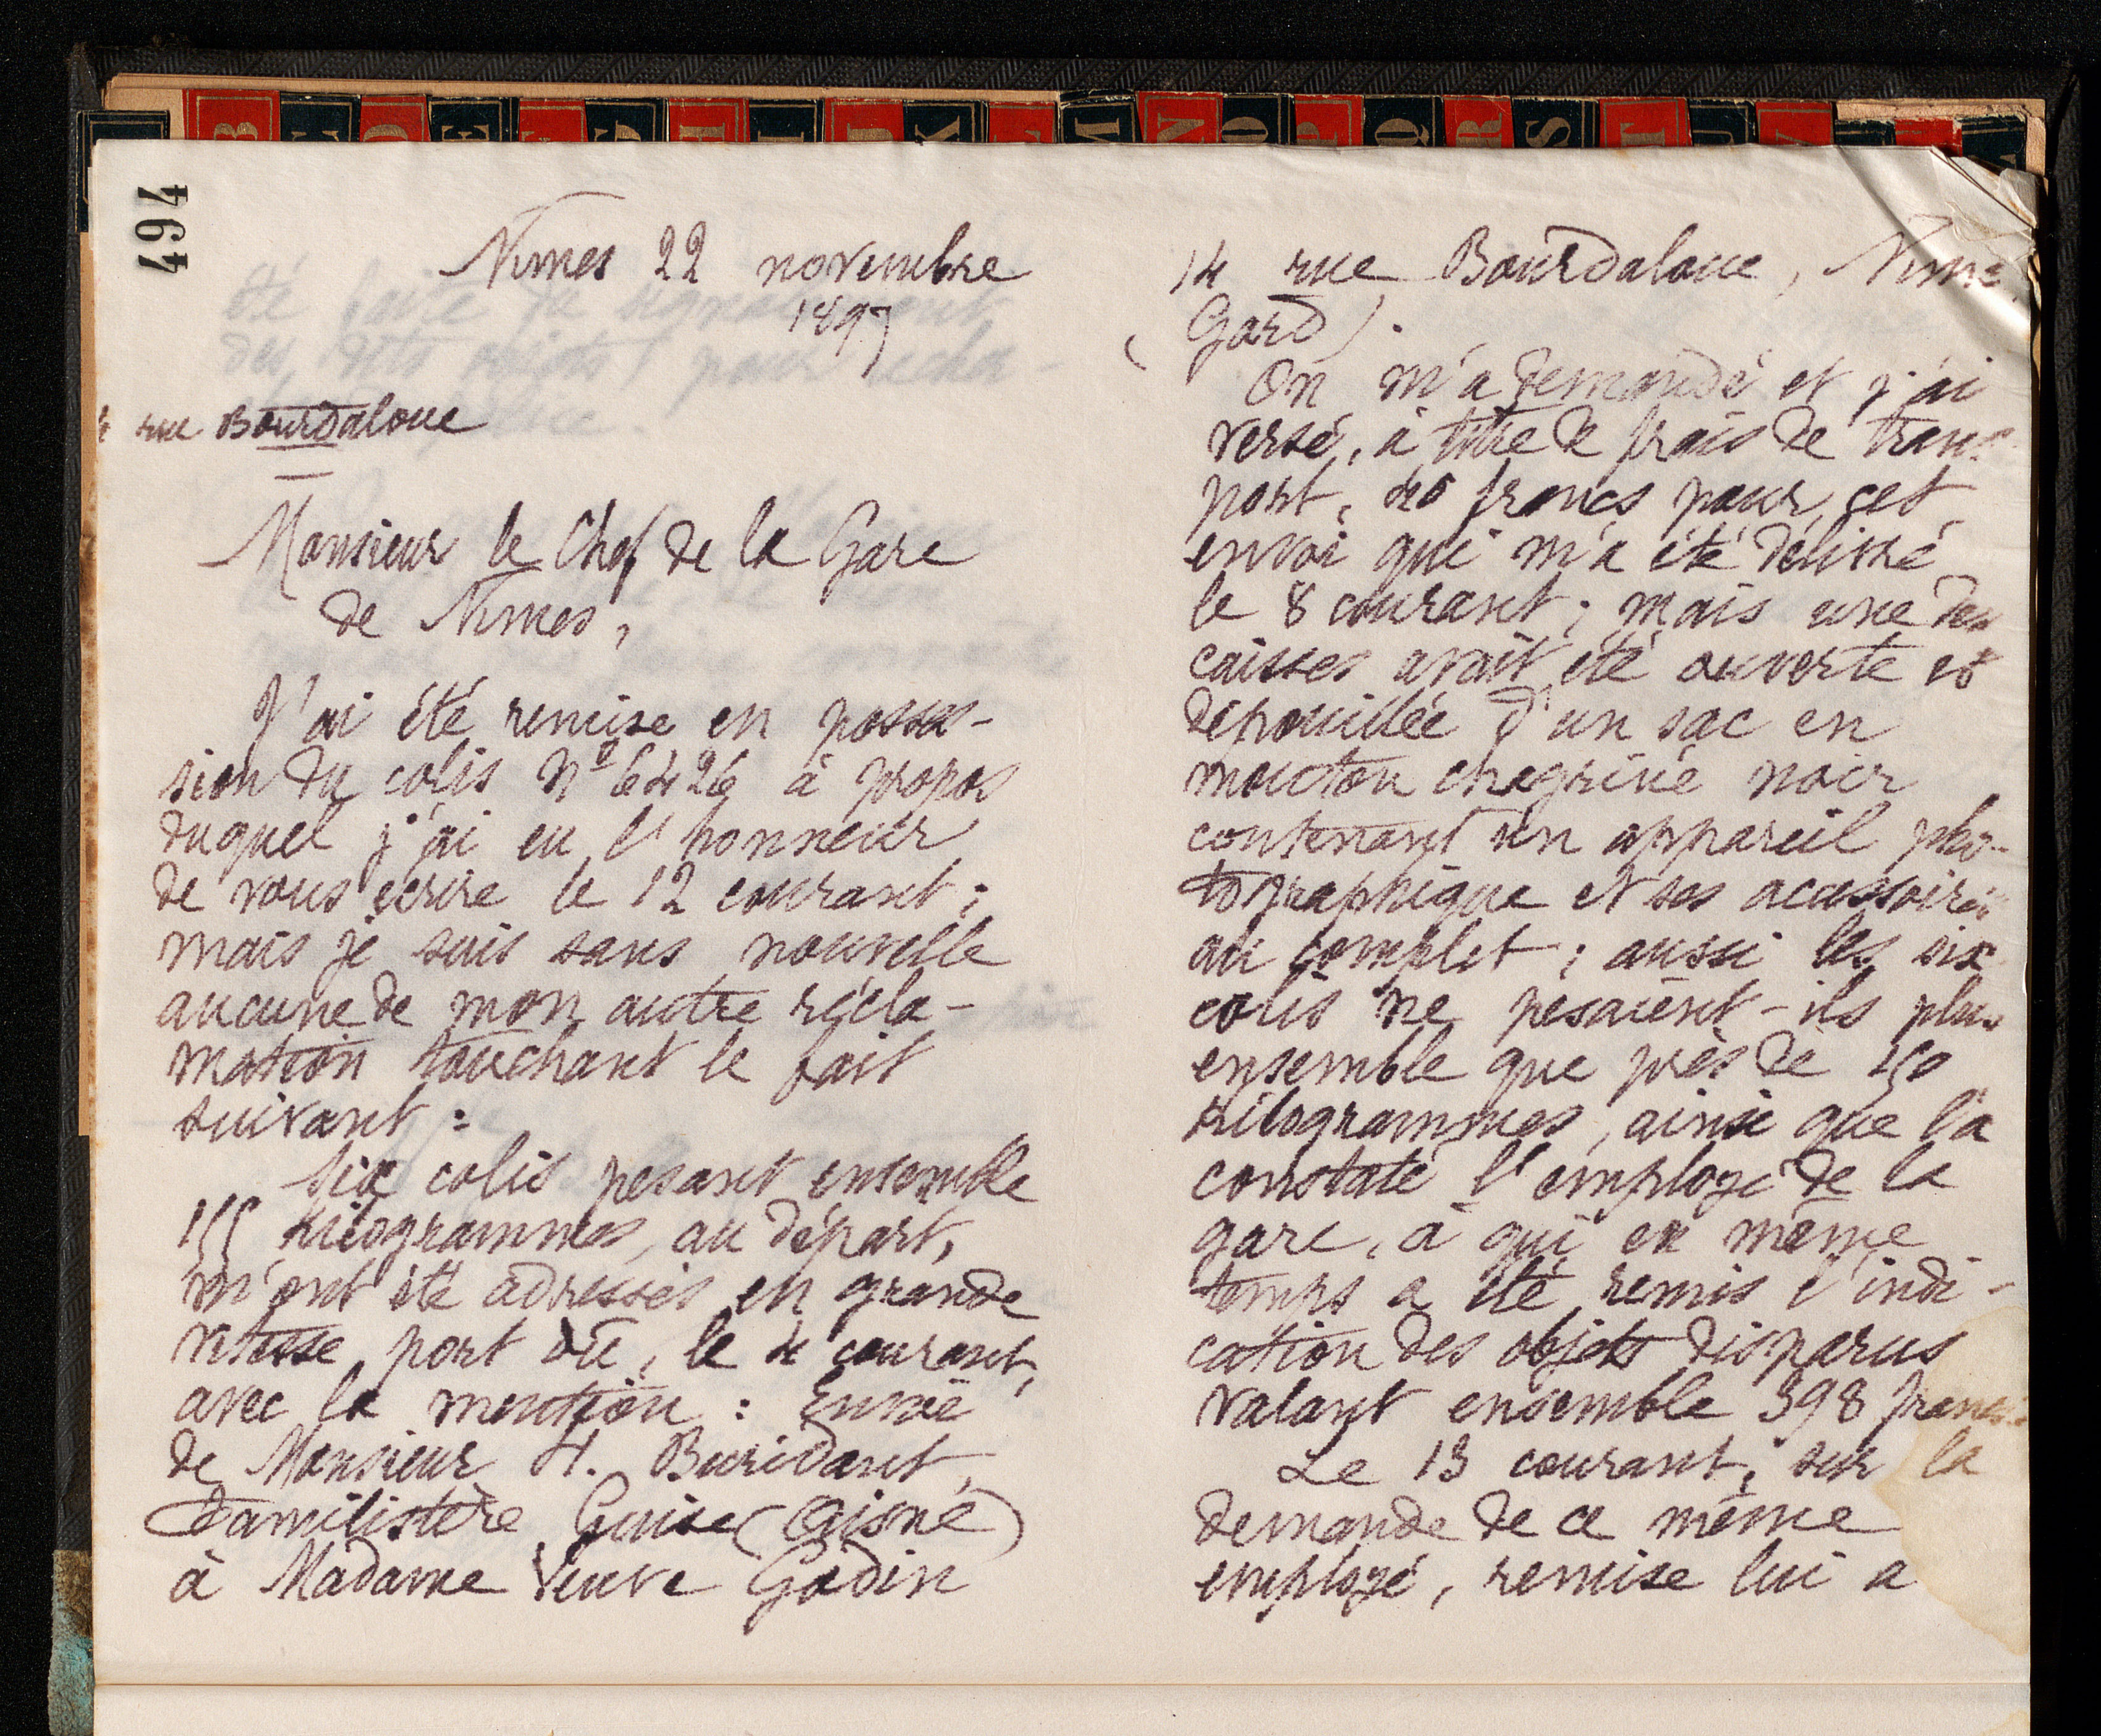 494
Nimes 22 novembre
1897
rue Bourdaloue
Monsieur le Chef de la Gare
de Nimes,
J'ai été remise en posses-
sion du colis Nº 6426 à propos
duquel j'ai eu l'honneur
de vous écrire le 12 courant ;
mais je suis sans nouvelle
aucune de mon autre récla-
mation touchant le fait
suivant :
Six colis pesant ensemble
155 kilogrammes, au départ,
m'ont été adressés en grande
vitesse, port dû, le 4 courant,
avec la mention : Envoi
de Monsieur H. Buridant,
Familistère Guise (Aisne)
à Madame Veuve Godin
14 rue Bourdaloue, Nimes
(Gard).
On m'a demandé et j'ai
versé, à titre de frais de trans-
port, 40 francs pour cet
envoi qui m'a été délivré
le 8 courant ; mais une des
caisses avait été ouverte et
dépouillée d'un sac en
mouton chagriné noir
contenant un appareil pho-
tographique et ses accessoires
au complet ; aussi les six
colis ne pesaient-ils plus
ensemble que près de 150
kilogrammes, ainsi que l'a
constaté l'employé de la
gare, à qui en même
temps a été remis l'indi-
cation des objets disparus
valant ensemble 398 francs.
Le 13 courant, sur la
demande de ce même
employé, remise lui a
B
D
E
H
I
K
L
M
N
O
P
Q
R
S
T
U
V